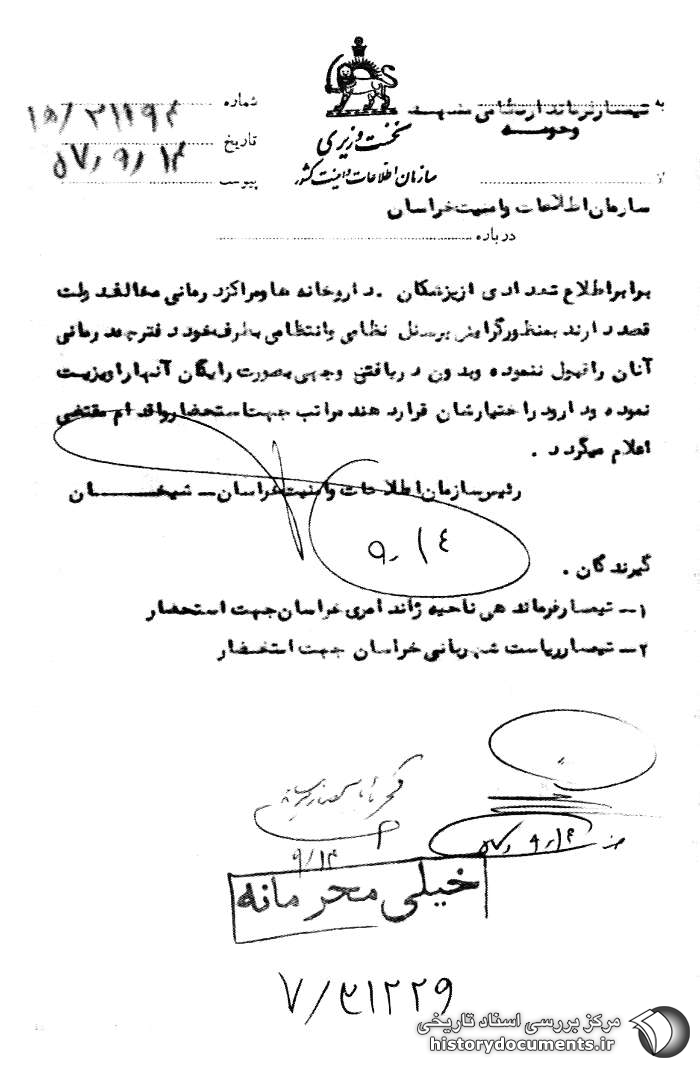 به تیمسار فرماندار نظامی مشهد
و حومه
نخست وزیری
سازمان اطلاعات و امنیت کشور
شماره ۱۵/۳۱۱۹۴
تاریخ ۵۷,۹,۱۴
پیوست
از
سازمان اطلاعات و امنیت خراسان
درباره
برابر اطلاع تعدادی از پزشکان . داروخانه ها و مراکز درمانی مخالف دولت
قصد دارند بمنظور گرایش پرسنل نظامی و انتظامی بطرف خود دفترچه درمانی
آنان را قبول ننموده و بدون دریافتن وجهی بصورت رایگان آنها را ویزیت
نموده و دارو در اختیارشان قرار دهند مراتب جهت استحضار و اقدام مقتضی
اعلام میگردد .
رئیس سازمان اطلاعات و امنیت خراسان ــ شیخان
۹, ۱۴
گیرندگان .
۱ــ تیمسار فرماندهی ناحیه ژاندامری خراسان جهت استحضار
۲ــ تیمسار ریاست شهربانی خراسان جهت استخضار
۵۷, ۹, ۱۴
۹/۱۴
خیلی محرمانه
۷/۳۱۲۲۹
مرکز بررسی اسناد تاریخی
historydocuments.ir